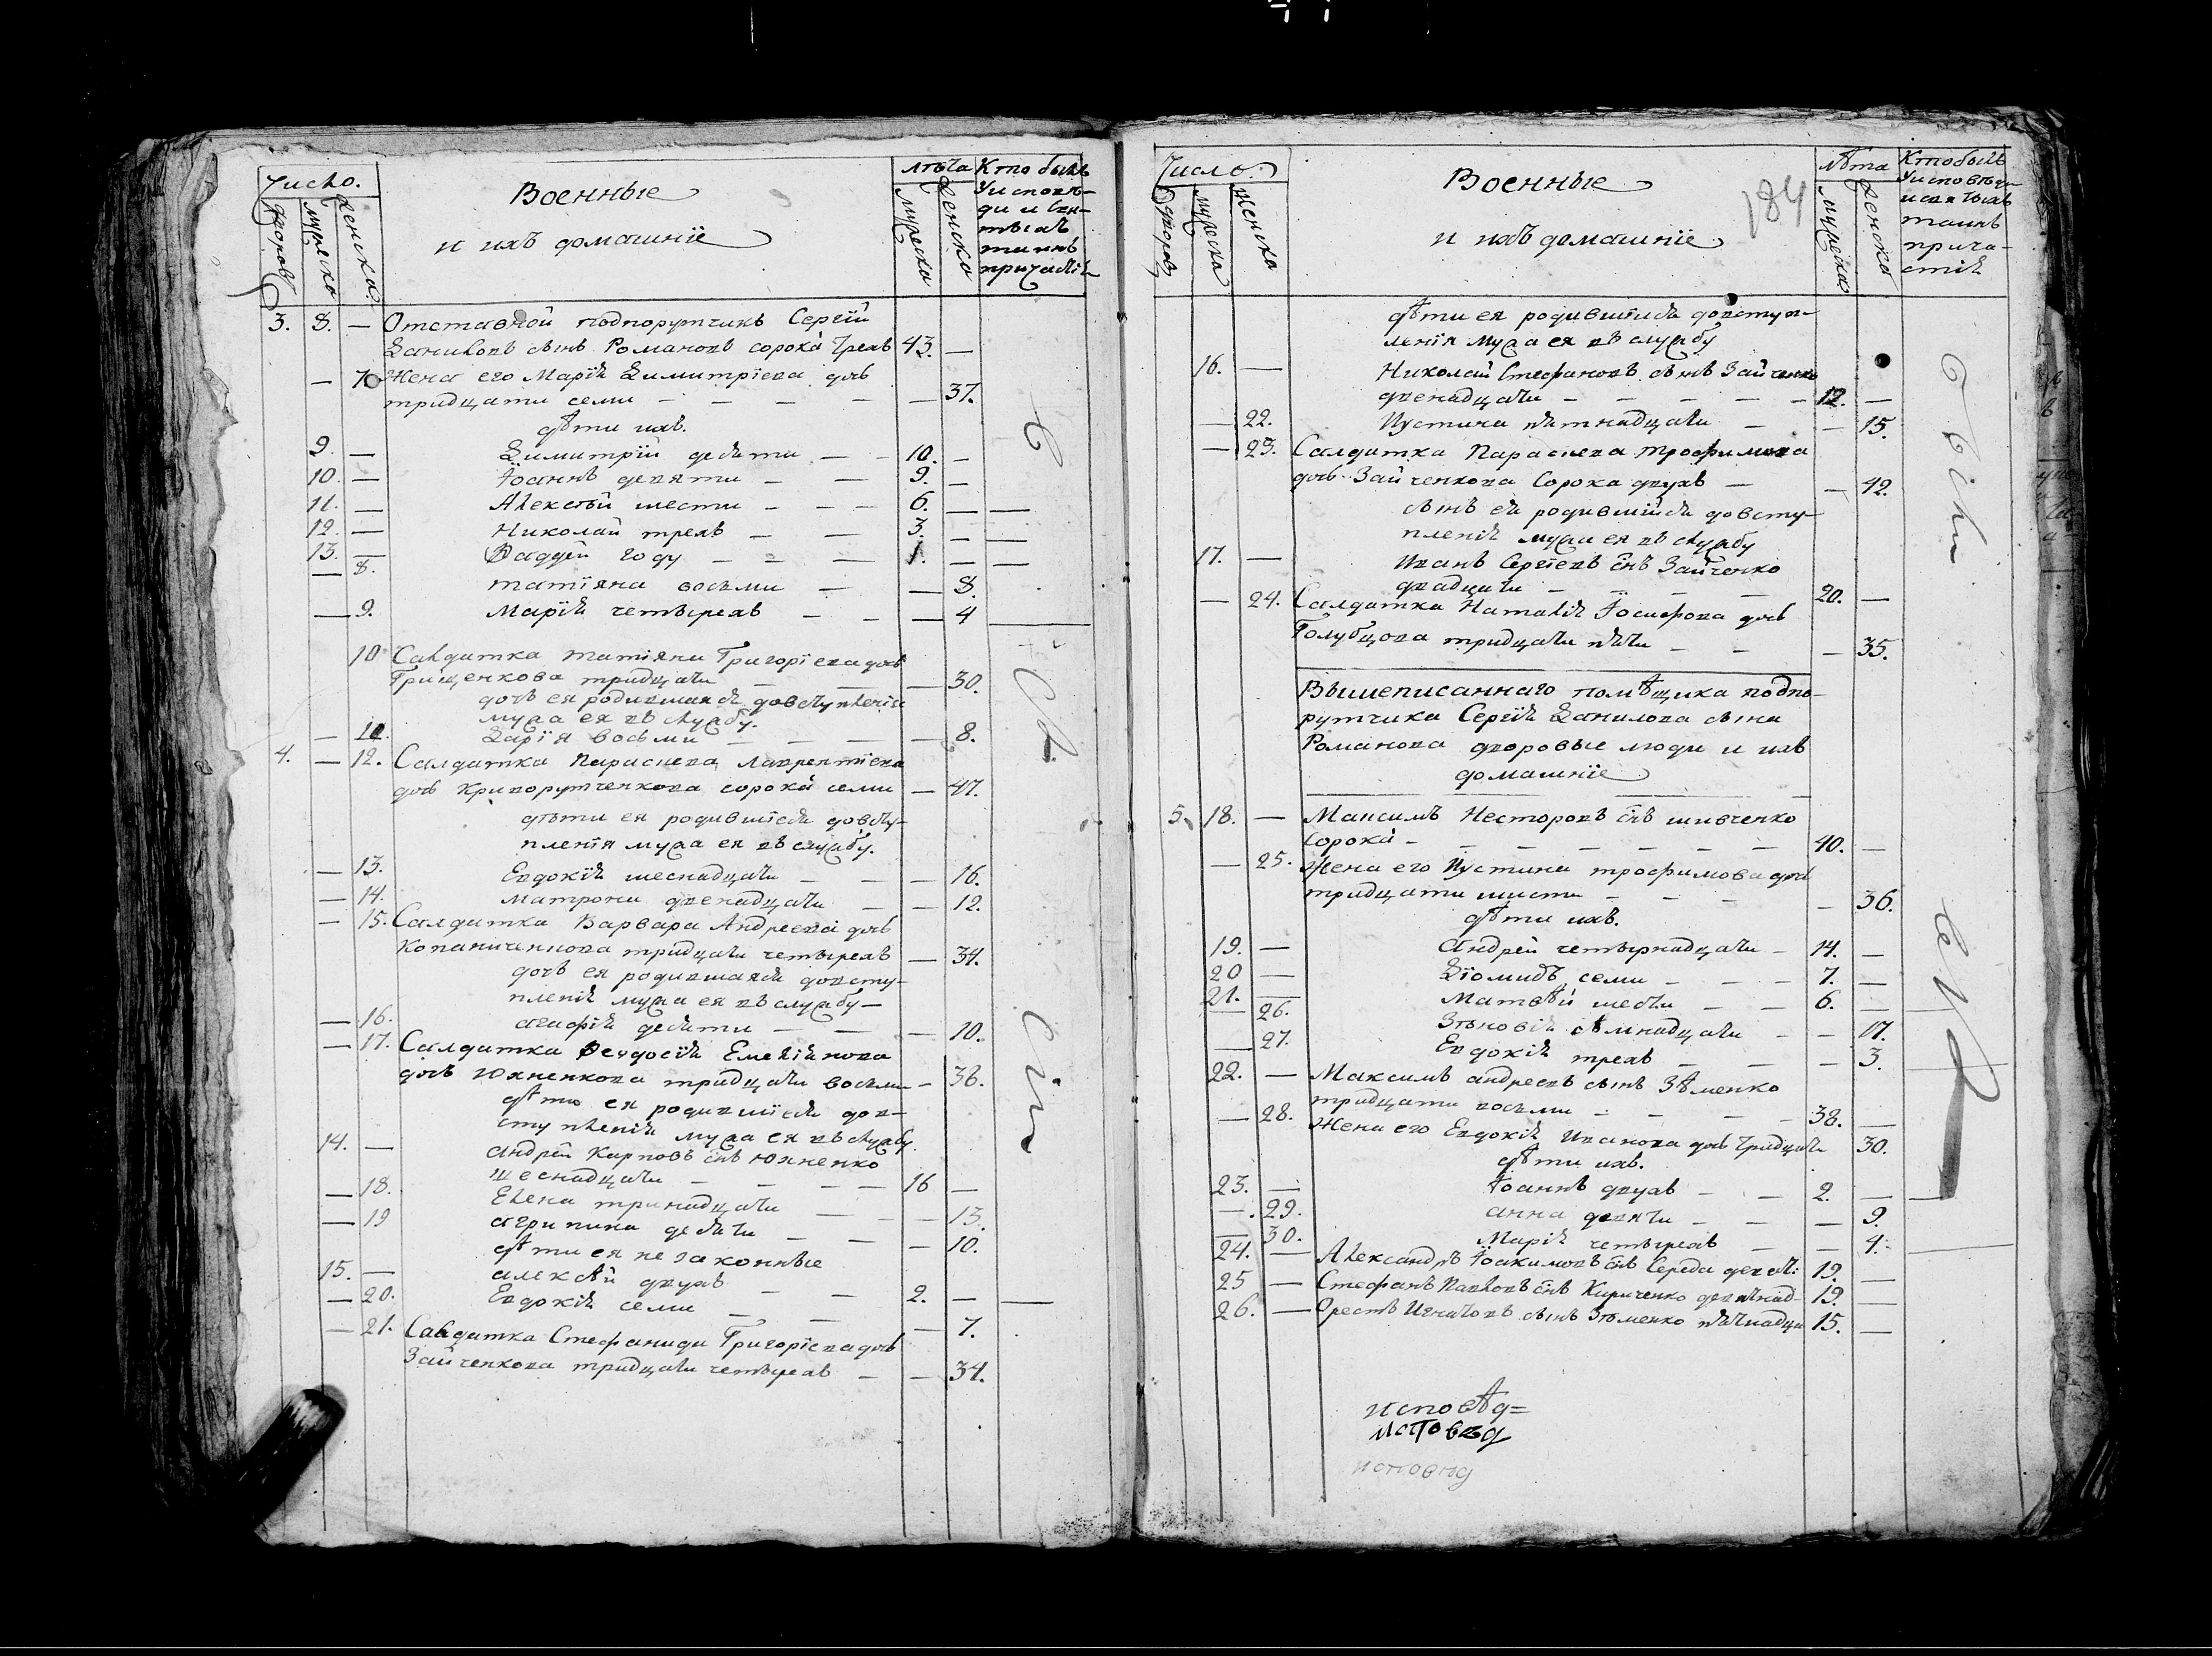 Число.
дворовъ
мужеска
женска.
Военные
и ихъ домашнїе
лѣта
мужеска
женска
Кто былъ
у исповѣ-
ди и свя-
тыхъ
таинъ
причастїя
3. 8. — Отставной подпорутчикъ Сергїй
Даниловъ сынъ Романовъ сорока трехъ 43. —
— 7 Жена его Марїя Димитрїева дочь
тридцати семи — — — — — 37.
дѣти ихъ.
9. — Димитрїй десяти — — 10. —
10. — Іоаннъ девяти — — 9. —
11. — Алексѣй шести — — — 6. — —
12. — Николай трехъ — — 3. — —
13. — Фаддей году — — — 1. — —
— 8. Татїяна восьми — — 8.
— 9. Марїя четырехъ — — — 4
10 Салдатка Татїяна Григорїева дочь
Грищенкова тридцати — — — 30.
дочь ея родившаяся до вступленїя
мужа ея въ службу.
— 11. Дарїя восьми — — — — 8.
4. — 12. Салдатка Параскева Лаврентїева
дочь Криворутченкова сорока семи — 47.
дѣти ея родившїеся до всту-
пленїя мужа ея въ службу.
— 13. Евдокїя шеснадцати — — — 16.
— 14. Матрона двенадцати — — 12.
— 15. Салдатка Варвара Андреева дочь
Копаниченкова тридцати четырехъ — 34.
дочь ея родившаяся до всту-
пленїя мужа ея въ службу —
— 16. Агафїя десяти — — — 10.
— 17. Салдатка Феодосїя Емелїянова
дочь Юхненкова тридцати восьми — 38.
дѣти ея родившїеся до в-
ступленїя мужа ея въ службу.
14. — Андрей Карповъ снъ Юхненко
шеснадцати — — — — 16 —
— 18. Елена тринадцати — — — 13.
— 19 Агрипина десяти — — — 10.
дѣти ея не законные
15. — Алексѣй двухъ — — 2. — —
— 20. Евдокїя семи — — — 7.
— 21. Салдатка Стефанида Григорїева дочь
Зайченкова тридцати четырехъ — — 34.
Число.
дворовъ
мужеска
женска
Военные
и ихъ домашнїе
184
лѣта
мужеска
женска
Кто былъ
у исповѣди
и святыхъ
таинъ
прича-
стїя
дѣти ея родившїися до вступ-
ленїя мужа ея въ службу
16. — Николай Стефановъ сынъ Зайченко
двенадцати — — — — — 12. —
— 22. Иустина пятнадцати — — 15.
— 23. Салдатка Параскева Трофимова
дочь Зайченкова сорока двухъ — — 42.
сынъ ея родившїйся до всту-
пленїя мужа ея въ службу
17. — Иванъ Сергїевъ снъ Зайченко
двадцати — — — — 20. —
— 24. Салдатка Наталїя Іосифова дочь
Голубцова тридцати пяти — — — 35.
Вышеписаннаго помѣщика подпо-
рутчика Сергїя Данилова сына
Романова дворовые люди и ихъ
домашнїе
5. 18. — Максимъ Несторовъ снъ Шивченко
сорока — — — — — — — 40. —
— 25. Жена его Иустина Трофимова дочь
тридцати шисти — — — — — 36.
дѣти ихъ.
19. — Андрей четырнадцати — 14. —
20 — Дїомидъ семи — — — 7. —
21. — Матвѣй шести — — 6. —
— 26. Зѣновїя сѣмнадцати — — 17.
— 27. Евдокїя трехъ — — — — 3.
22. — Максимъ Андреевъ сынъ Зѣменко
тридцати восьми — — — — 38. —
— 28. Жена его Евдокїя Иванова дочь тридцати 30.
дѣти ихъ.
23. — Іоаннъ двухъ — — 2. — —
— 29. Анна девяти — — — 9.
— 30. Марїя четырехъ — — 4. —
24. — Александръ Іоакимовъ снъ Середа девятн: 19. —
25 — Стефанъ Павловъ снъ Кириченко девятнад- 19. —
26. — Орестъ Игнатовъ сынъ Зѣменко пятнадца 15. —
исповѣд=
исповѣд
исповѣд